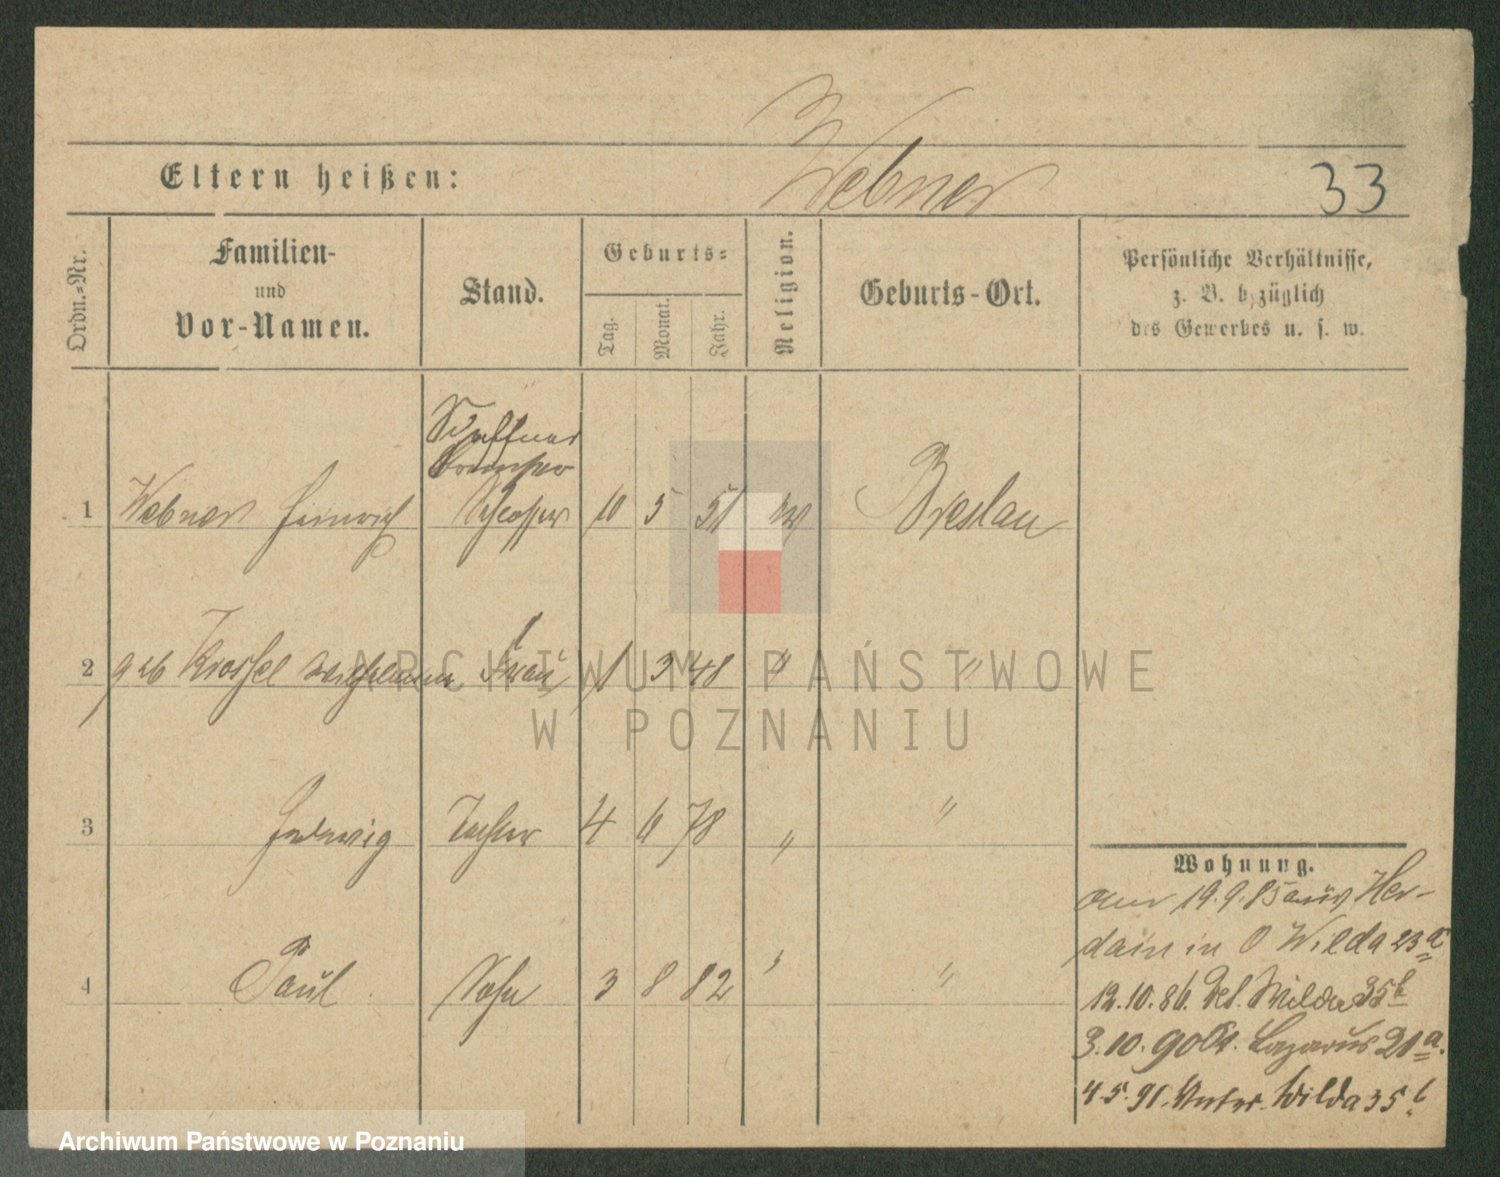 Webner
Eltern heißen:
33
Ordn.=Nr.
Familien-
und
Vor-Namen.
Stand.
Geburts=
Tag.
Monat.
Jahr.
Religion.
Geburts-Ort.
Persönliche Verhältnisse,
z. B. bezüglich
des Gewerbes u. s. w.
Schaffner
Bremser
1 Webner Heinrich Schlosser 10 5 51 Breslau
2 geb Kroschel Wilhelmine Frau 1 3 48 " "
3 Hedwig Tochter 4 6 78 " "
4 Paul Sohn 3 8 82 " "
Wohnung.
am 19.9.85 aus Her-
dain in O Wilda 23a
12.10.86. Wilda 35b
3.10.90 St. Lazarus 21a.
4.5.91. Unter-Wilda 35b
ARCHIWUM PAŃSTWOWE
W POZNANIU
Archiwum Państwowe w Poznaniu